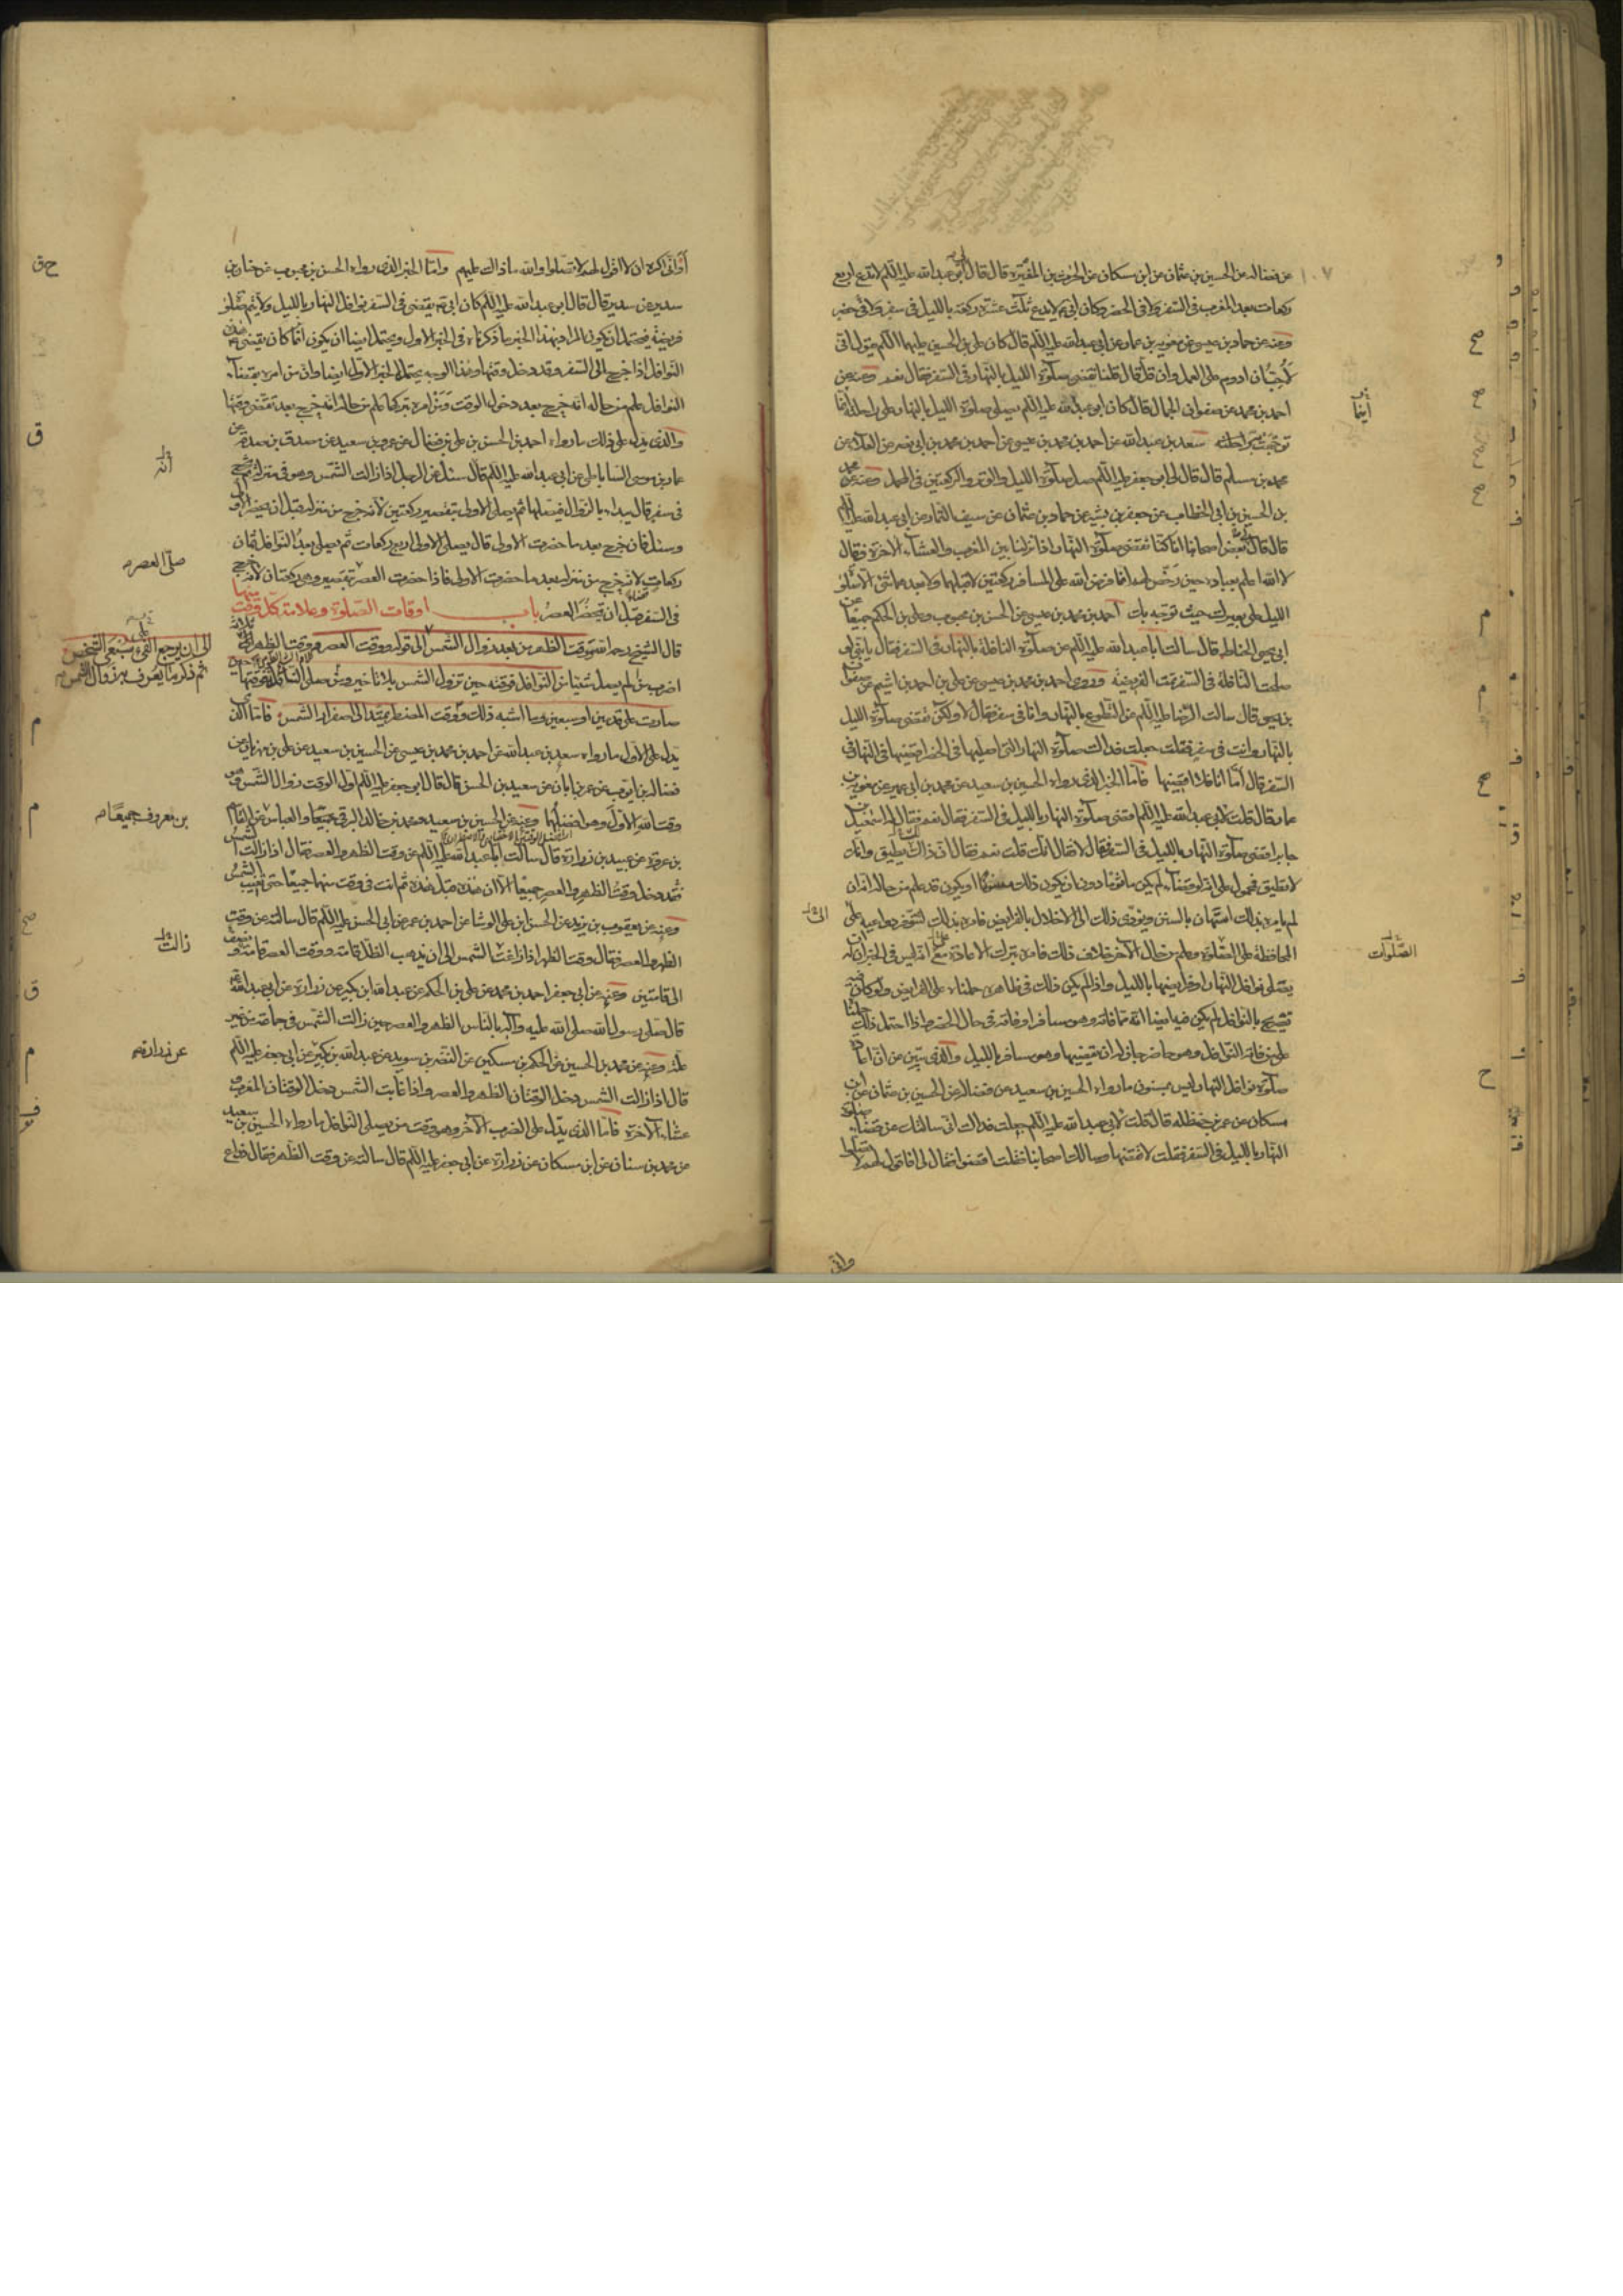 عن فضالة عن الحسين بن عثمان عن ابن مسكان عن الحرث بن المغيرة قال قال ابو عبد الله عليه السلام لا تدع اربع
ركعات بعد المغرب في السفر ولا في الحضر وكان ابي لا يدع ثلث عشرة ركعة بالليل في سفر ولا في حضر
وعنه عن حماد بن عيسى عن معوية بن عمار عن ابي عبد الله عليه السلام قال كان علي بن الحسين عليهما السلام يقول اني
لاحب ان ادوم على العمل وان قل قال قلنا نقضي صلوة الليل بالنهار في السفر قال نعم وعنه عن
احمد بن محمد عن صفوان الجمال قال كان ابو عبد الله عليه السلام يصلي صلوة الليل بالنهار على راحلته اينما
توجهت به راحلته سعد بن عبد الله عن احمد بن محمد بن عيسى عن احمد بن محمد بن ابي نصر عن العلاء عن
محمد بن مسلم قال قال لي ابو جعفر عليه السلام صل صلوة الليل والوتر والركعتين في المحمل وعنه عن محمد
بن الحسين بن ابي الخطاب عن جعفر بن بشير عن حماد بن عثمان عن سيف التمار عن ابي عبد الله عليه السلام
قال قال بعض اصحابنا انا كنا نقضي صلوة النهار اذا نزلنا بين المغرب والعشاء الاخرة فقال
لا الله اعلم بعباده حين رخص لهم انما فرض الله على المسافر ركعتين لا قبلهما ولا بعدهما شئ الا صلوة
الليل على بعيرك حيث توجه بك احمد بن محمد بن عيسى عن الحسن بن محبوب وعلي بن الحكم جميعا عن
ابي يحيى الحناط قال سالت ابا عبد الله عليه السلام عن صلوة النافلة بالنهار في السفر فقال يا بني لو
صلحت النافلة في السفر تمت الفريضة وروى احمد بن محمد بن عيسى عن علي بن احمد بن اشيم عن صفوان
بن يحيى قال سالت الرضا عليه السلام عن التطوع بالنهار وانا في سفر فقال لا ولكن تقضي صلوة الليل
بالنهار وانت في سفر فقلت جعلت فداك صلوة النهار التي اصليها في الحضر اقضيها في النهار في
السفر قال اما انا فلا اقضيها فاما الخبر الذي رواه الحسين بن سعيد عن محمد بن ابي عمير عن معوية بن
عمار قال قلت لابي عبد الله عليه السلام اقضي صلوة النهار بالليل في السفر فقال نعم فقال له اسمعيل بن
جابر اقضي صلوة النهار بالليل في السفر فقال لا فقال انك قلت نعم فقال ان ذاك يطيق وانت
لا تطيق فمحمول على انه لو قضاه لم يكن ماثوما دون ان يكون ذلك مسنونا او يكون قد علم من حاله انه ان
لم يامره بذلك استهان بالسنن ويؤدي ذلك الى الاخلال بالفرائض فامره بذلك لتتوفر دواعيه على
المحافظة على الصلوة وعلم من حال الآخر خلاف ذلك فامره بترك الاعادة مع انه ليس في الخبر ان له
يقضي نوافل النهار او فرايضها بالليل واذا لم يكن ذلك في ظاهره حملناه على الفرايض ولو كان فيه
تصريح بالنوافل لم يكن فيه ايضا انه مما فاته وهو مسافر او فاته في حال الحضر واذا احتمل ذلك حملناه
على من فاته النوافل وهو حاضر جاز له ان يقضيها وهو مسافر بالليل والذي يبين عن ان اعادة
صلوة نوافل النهار ليس بمسنون ما رواه الحسين بن سعيد عن فضالة عن الحسين بن عثمان عن ابن
مسكان عن عمر بن حنظلة قال قلت لابي عبد الله عليه السلام جعلت فداك اني سالتك عن قضاء صلوة
النهار بالليل في السفر فقلت لا تقضها وسالك اصحابنا فقلت اقضوا فقال لي افاقول لهم لا تصلوا
واني
ايضا
الصلوات
الى
أو اني اكره ان لا اقول لهم لا تصلوا والله ما ذاك عليهم واما الخبر الذي رواه الحسن بن محبوب عن حنان بن
سدير عن سدير قال قال ابو عبد الله عليه السلام كان ابي يقضي في السفر نوافل النهار بالليل ولا يتم صلوة
فريضة فيحتمل ان يكون المراد بهذا الخبر ما ذكرناه في الخبر الاول ويحتمل ايضا ان يكون انما كان يقضي هذه
النوافل اذا خرج الى السفر وقد دخل وقتها وهذا الوجه يحتمل الخبر الاول ايضا وان من امره بقضاء
النوافل علم من حاله انه خرج بعد دخول الوقت ومن امره بتركها علم من حاله انه خرج بعد تقضي وقتها
والذي يدل على ذلك ما رواه احمد بن الحسن بن علي بن فضال عن عمرو بن سعيد عن مصدق بن صدقة عن
عمار بن موسى الساباطي عن ابي عبد الله عليه السلام قال سئل عن الرجل اذا زالت الشمس وهو في منزله ثم يخرج
في سفر قال يبداء بالزوال فيصليها ثم يصلي الاولى بتقصير ركعتين لانه خرج من منزله قبل ان تحضر الاولى
وسئل فان خرج بعد ما حضرت الاولى قال يصلي الاولى اربع ركعات ثم يصلي بعد النوافل ثمان
ركعات لانه خرج من منزله بعد ما حضرت الاولى فاذا حضرت العصر تقصير وهي ركعتان لانه خرج
في السفر قبل ان تحضر العصر باب اوقات الصلوة وعلامة كل وقت منها
قال الشيخ رحمه الله وقت الظهر من بعد زوال الشمس الى قوله ووقت العصر ووقت الظهر على ثلاثة
اضرب من لم يصل شيئا من النوافل فوقته حين تزول الشمس بلا تاخير ومن صلى النافلة فوقتها
صارت على قدمين او سبعين وما اشبه ذلك ووقت المضطر يمتد الى اصفرار الشمس فاما الذي
يدل على الاول ما رواه سعد بن عبد الله عن احمد بن محمد بن عيسى عن الحسين بن سعيد عن علي بن مهزيار عن
فضالة بن ايوب عن عمر بن ابان عن سعيد بن الحسن قال قال ابو جعفر عليه السلام اول الوقت زوال الشمس وهو
وقت الله الاول وهو افضلهما وعنه عن الحسين بن سعيد ومحمد بن خالد البرقي جميعا والعباس عن القاسم
بن عروة عن عبيد بن زرارة قال سالت ابا عبد الله عليه السلام عن وقت الظهر والعصر فقال اذا زالت الشمس
فقد دخل وقت الظهر والعصر جميعا الا ان هذه قبل هذه ثم انت في وقت منهما جميعا حتى تغيب الشمس
وعنه عن يعقوب بن يزيد عن الحسن بن علي الوشا عن احمد بن عمر عن ابي الحسن عليه السلام قال سالته عن وقت
الظهر والعصر فقال وقت الظهر اذا زاغت الشمس الى ان يذهب الظل قامة ووقت العصر قامة ونصف
الى قامتين وعنه عن ابي جعفر احمد بن محمد عن علي بن الحكم عن عبد الله بن بكير عن زرارة عن ابي عبد الله
قال صلى رسول الله صلى الله عليه وآله بالناس الظهر والعصر حين زالت الشمس في جماعة من غير
علة وعنه عن محمد بن الحسين عن الحكم بن مسكين عن النضر بن سويد عن عبد الله بن بكير عن ابي جعفر عليه السلام
قال اذا زالت الشمس دخل الوقتان الظهر والعصر واذا غابت الشمس دخل الوقتان المغرب
عشاء الآخرة فاما الذي يدل على الضرب الآخر وهو وقت من يصلي النوافل ما رواه الحسين بن سعيد
عن محمد بن سنان عن ابن مسكان عن زرارة عن ابي جعفر عليه السلام قال سالته عن وقت الظهر فقال ذراع
انه
صلى العصر
الى ان يرجع الفئ سبعي الشخص
ثم ذكر ما يعرف به زوال الشمس
بن معروف جميعا
زالت
عن زرارة